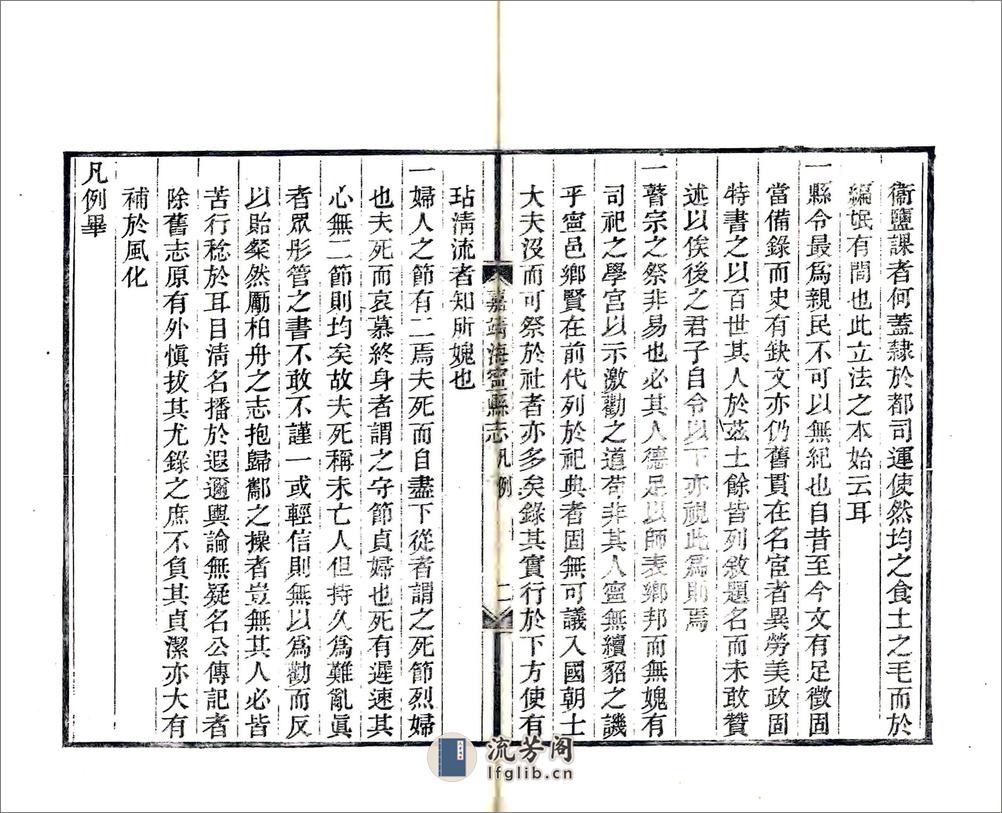 衞鹽課者何蓋隷於都司運使然均之食土之毛而於
編氓有間也此立法之本始云耳
一縣令最爲親民不可以無紀也自昔至今文有足徵固
當備錄而史有缺文亦仍舊貫在名宦者異勞美政固
特書之以百世其人於茲土餘皆列敘題名而未敢贊
述以俟後之君子自令以下亦視此爲則焉
一瞽宗之祭非易也必其人德足以師表鄉邦而無媿有
司祀之學宮以示激勸之道苟非其人寧無續貂之譏
乎寧邑鄉賢在前代列於祀典者固無可議入國朝士
大夫沒而可祭於社者亦多矣錄其實行於下方使有
嘉靖海寧縣志 凡例 二
玷清流者知所媿也
一婦人之節有二焉夫死而自盡下從者謂之死節烈婦
也夫死而哀慕終身者謂之守節貞婦也死有遲速其
心無二節則均矣故夫死稱未亡人但持久爲難亂眞
者眾彤管之書不敢不謹一或輕信則無以爲勸而反
以貽粲然厲柏舟之志抱歸鄰之操者豈無其人必皆
苦行稔於耳目淸名播於遐邇輿論無疑名公傳記者
除舊志原有外愼拔其尤錄之庶不負其貞潔亦大有
補於風化
凡例畢
流芳阁
lfglib.cn